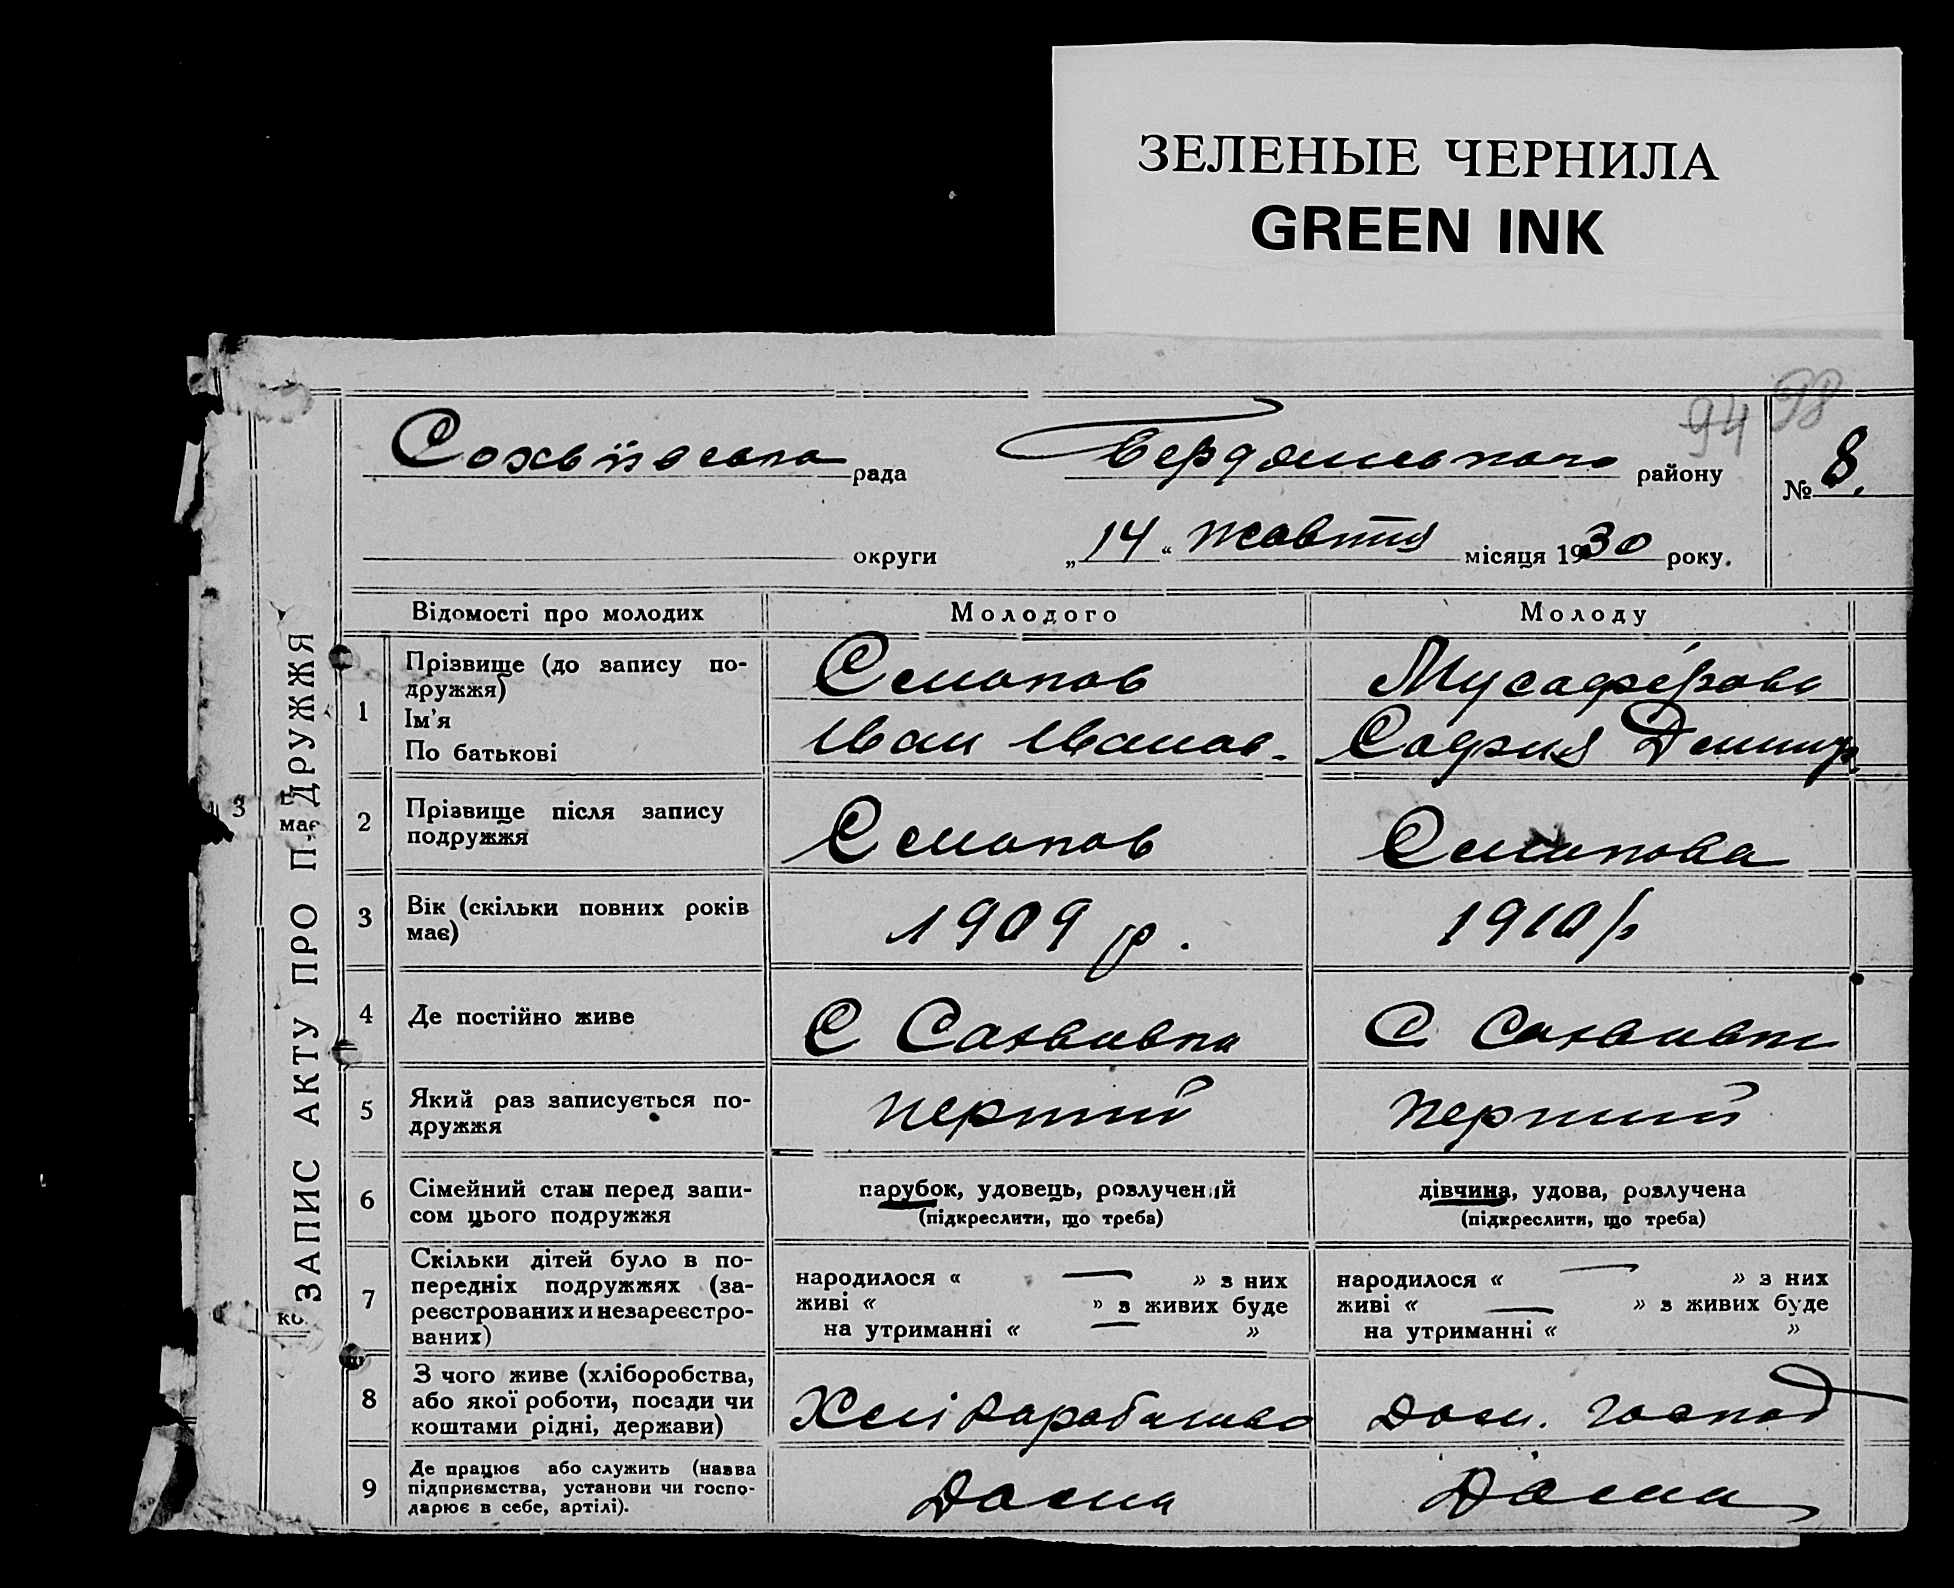 ЗЕЛЕНЫЕ ЧЕРНИЛА
GREEN INK
94 98
рада Бердянського району № 8.
округи „14“ жовтня місяця 1930 року.
ЗАПИС АКТУ ПРО ПОДРУЖЖЯ
Відомості про молодих Молодого Молоду
1 Прізвище (до запису по-
дружжя)
Ім'я
По батькові
Іван Іванов.
София
2 Прізвище після запису
подружжя
3 Вік (скільки повних років
має)
1909 р. 1910 р
4 Де постійно живе
5 Який раз записується по-
дружжя
перший перший
6 Сімейний стан перед запи-
сом цього подружжя
парубок, удовець, розлучений
(підкреслити, що треба)
дівчина, удова, розлучена
(підкреслити, що треба)
7 Скільки дітей було в по-
передніх подружжях (за-
реєстрованих и незареєстро-
ваних)
народилося « — » з них
живі « » з живих буде
на утриманні « — »
народилося « — » з них
живі « — » з живих буде
на утриманні « »
8 З чого живе (хліборобства,
або якої роботи, посади чи
коштами рідні, держави)
дом. господ
9 Де працює або служить (назва
підприємства, установи чи госпо-
дарює в себе, артілі).
Дома Дома
3
має